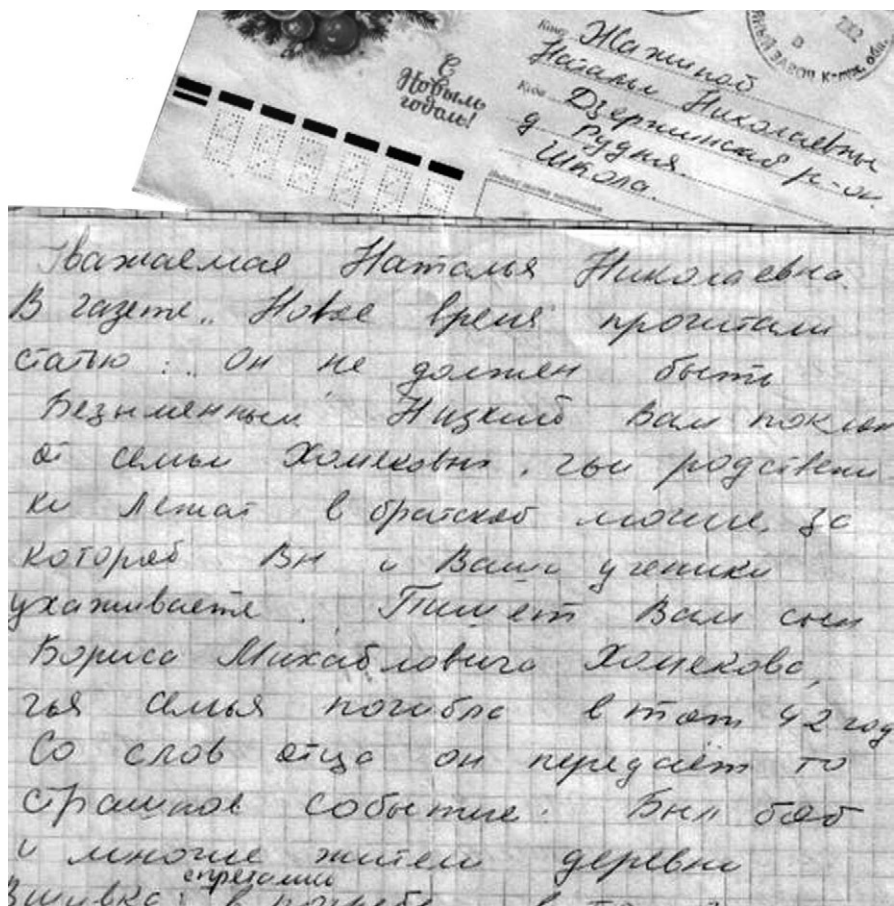 С
Новым
годом!
Кому Жажиной
Натальи Николаевны
Куда Дзержинский р-он
д Рудня.
Школа.
2012
Уважаемая Наталья Николаевна.
В газете „Новое время" прочитали
статью: „Он не должен быть
Безыменным" Низкий Вам поклон
от семьи Хомековых, чьи родствени
ки лежат в братской могиле, за
которой Вы и Ваши ученики
ухаживаете. Пишет Вам сын
Бориса Михайловича Хомекова,
чья семья погибла в том 42 год
Со слов отца он передаёт то
страшное событие. Был бой
и многие жители деревни
спрятались
в погребе